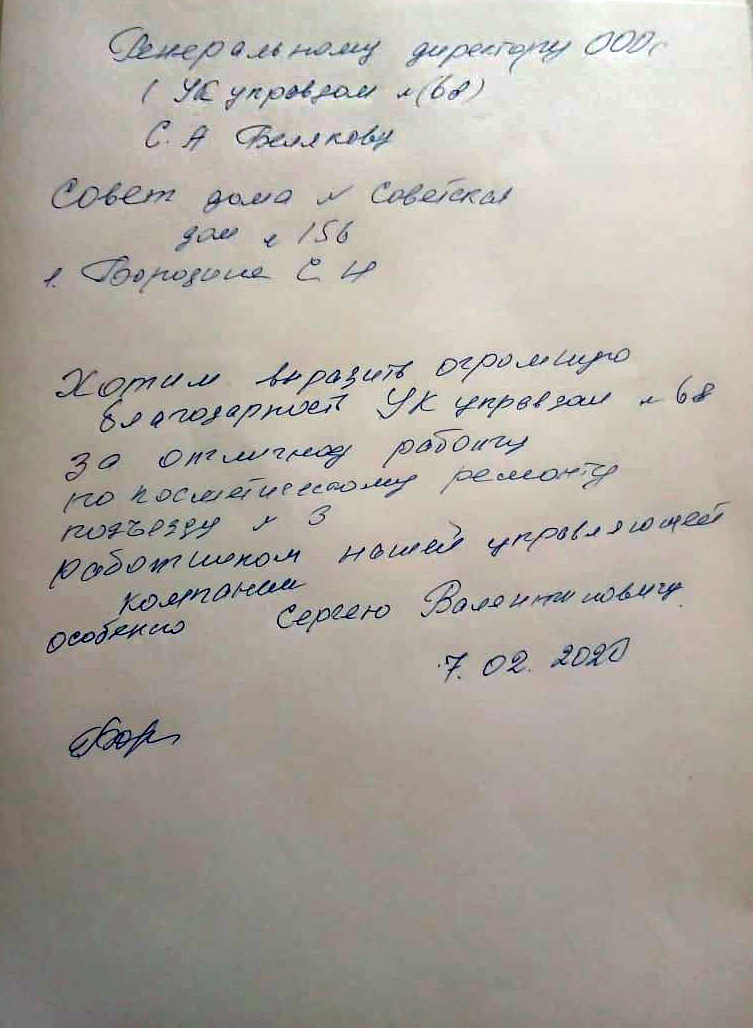 Генеральному директору ООО
( УК управдом №(68)
С. А Белякову
Совет дома № Советская
дом № 156
1. Бородина С Н
Хотим выразить огромную
благодарность УК управдом № 68
за отличную работу
по косметическому ремонту
подъезду № 3
работником нашей управляющей
компании
особенно Сергею Валентиновичу.
7. 02. 2020
Бор